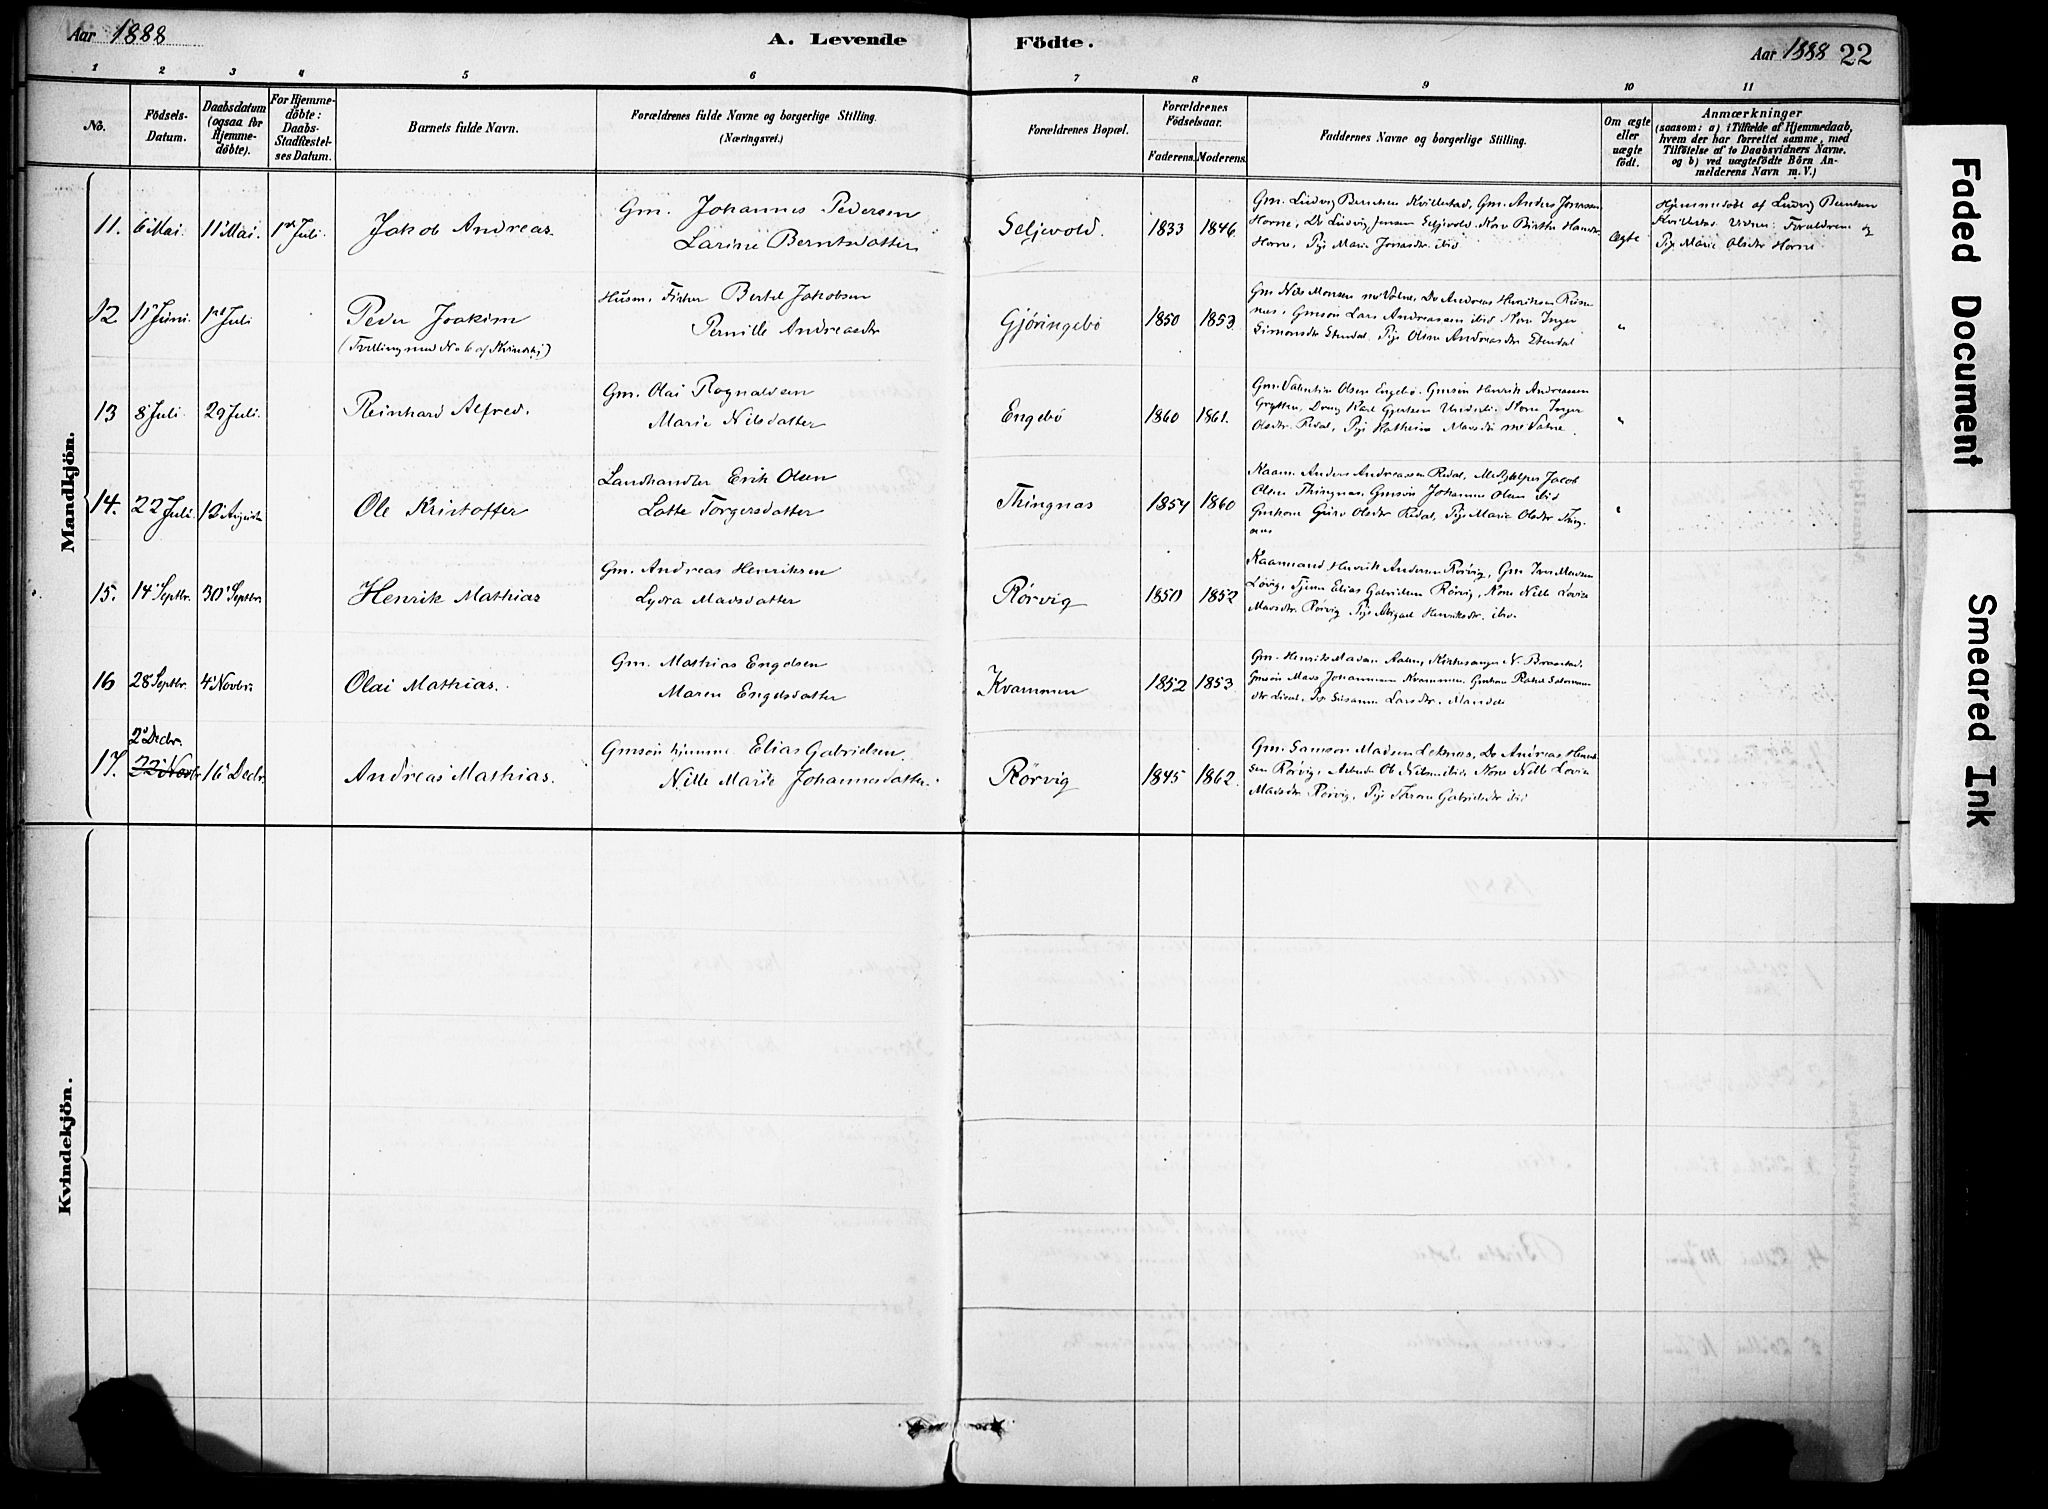 Aar 1888
A. Levende Födte.
Aar 1888 22
1 2 3 4 5 6 7 8 9 10 11
No.
Födsels-Datum.
Daabsdatum (ogsaa for Hjemme-döbte).
For Hjemme-döbte: Daabs-Stadfæstel-ses Datum.
Barnets fulde Navn.
Forældrenes fulde Navne og borgerlige Stilling.
(Næringsvei.)
Forældrenes Bopæl.
Forældrenes Födselsaar.
Faderens. Moderens.
Faddernes Navne og borgerlige Stilling.
Om ægte eller uægte födt.
Anmærkninger
(saasom: a) i Tilfælde af Hjemmedaab,
hvem der har forrettet samme, med
Tilföielse af to Daabsvidners Navne.
og b) ved uægtefödte Börn An-
melderens Navn m. V.)
Mandkjön.
11. 6 Mai. 11 Mai. 1st Juli. Jakob Andreas.
Gm. Johannes Pedersen
Larine Berntsdatter
Seljevold. 1833 1846.
Gm. Ludvig Berntsen Kvillestad, Gm. Anders Jonassen
Horne, Do Ludvig Jensen Seljevold. Kone Birthe Hansdr
Horne, Pige Marie Jonasdr. ibid
Ægte
Hjemmedöbt af Ludvig Berntsen
Kvillestad. Vidner: Forældrene og
Pige Marie Olsdtr Horne
12. 11 Juni. 1st Juli Peder Joakim
(Tvilling med No 6 af Kvindekj)
Husm. Fisker Bertel Jakobsen
Pernille Andreasdtr
Gjöringebö 1850 1853.
Gm. Nils Monsen Valne, Do Andreas Henriksen
Gmsön Lars Andreassen ibid Kone Inger
Simonsdtr Stendal. Pige Oline Andreasdtr Stendal
"
13 8 Juli. 29 Juli. Reinhard Alfred.
Gm. Olai Rognaldsen
Marie Nilsdatter
Engebö 1860 1861.
Gm. Valentin Olsen Engebö. Gmsön Henrik Andreassen
Grytten, Dreng Karl Gjertsen Kone Inger
Olsdtr. Redal, Pige Kathrine Valne.
"
14. 22 Juli. 12 Augusti Ole Kristoffer
Landhandler Erik Olsen
Lotte Torgersdatter
Thingnas 1854 1860
Kaarm. Anders Andreassen Redal, Jacob
Olsen Thingnas, Gmsön Johannes Olsen ibid
Gmkone Guro Olsdtr Redal, Pige Marie Olsdtr Thing-
nas
"
15. 14 Septbr. 30 Septbr. Henrik Mathias
Gm. Andreas Henriksen
Lydra Madsdatter
Rörvig 1850 1852
Kaarmand Henrik Andersen Rörvig, Gm Iver Madsen
Lövig, Tjener Elias Gabrielsen Rörvig, Kone Nille Lovise
Madsdtr. Rörvig Pige Abigael Henriksdtr. ibid.
16 28 Septbr. 4 Novbr. Olai Mathias.
Gm. Mathias Engelsen
Maren Engelsdatter
Kvammen 1852 1853.
Gm. Henrik Madsen Kirkesanger N.
Gmsön Mads Johannessen Kvammen. Gmkone Rakel Salomons-
dtr Pige Susanne Larsdtr.
17. 2 Decbr.
22 Novbr. 16 Decbr. Andreas Mathias.
Gmsön hjemme Elias Gabrielsen
Nille Marie Johannesdatter.
Rörvig 1845 1862.
Gm. Samson Madsen Leknas, Do Andreas Henrik-
sen Rörvig, Arbeider Ob Nilsen ibid, Kone Nille Lovise
Madsdtr Rörvig, Pige Gabrielsdtr ibid
Kvindekjön.
Faded Document
Smeared Ink